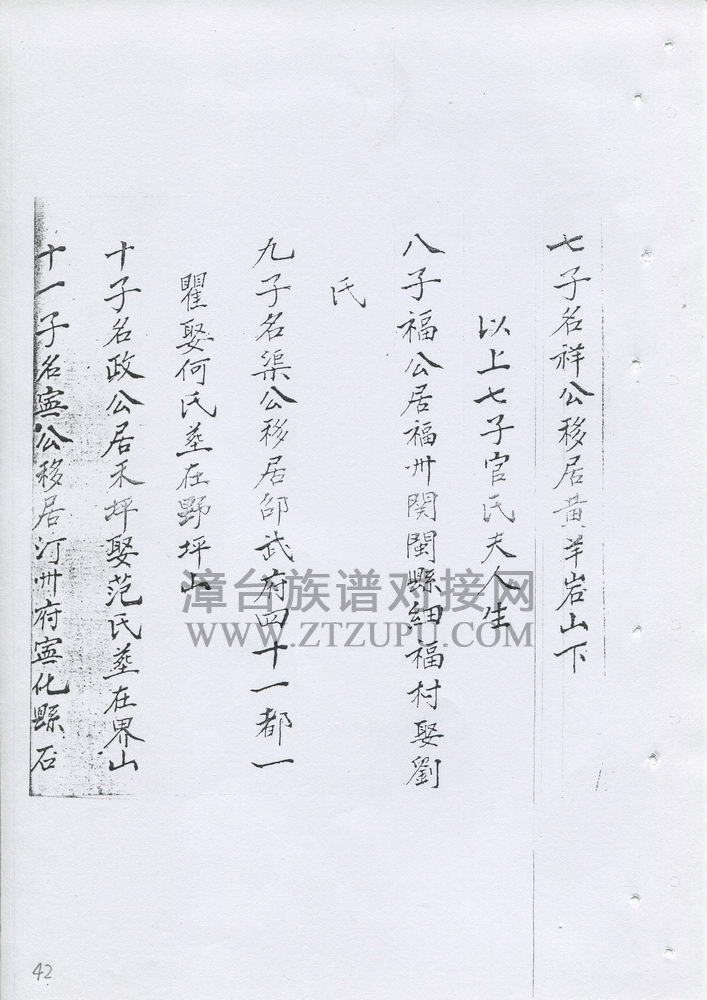 七子名祥公移居黄羊岩山下
以上七子官氏夫人生
八子福公居福州関閩縣細福村娶劉
氏
九子名渠公移居邵武府四十一都一
瞿娶何氏塟在野坪山
十子名政公居禾坪娶范氏塟在界山
十一子名寍公移居汀州府寍化縣石
漳台族谱对接网
WWW.ZTZUPU.COM
42